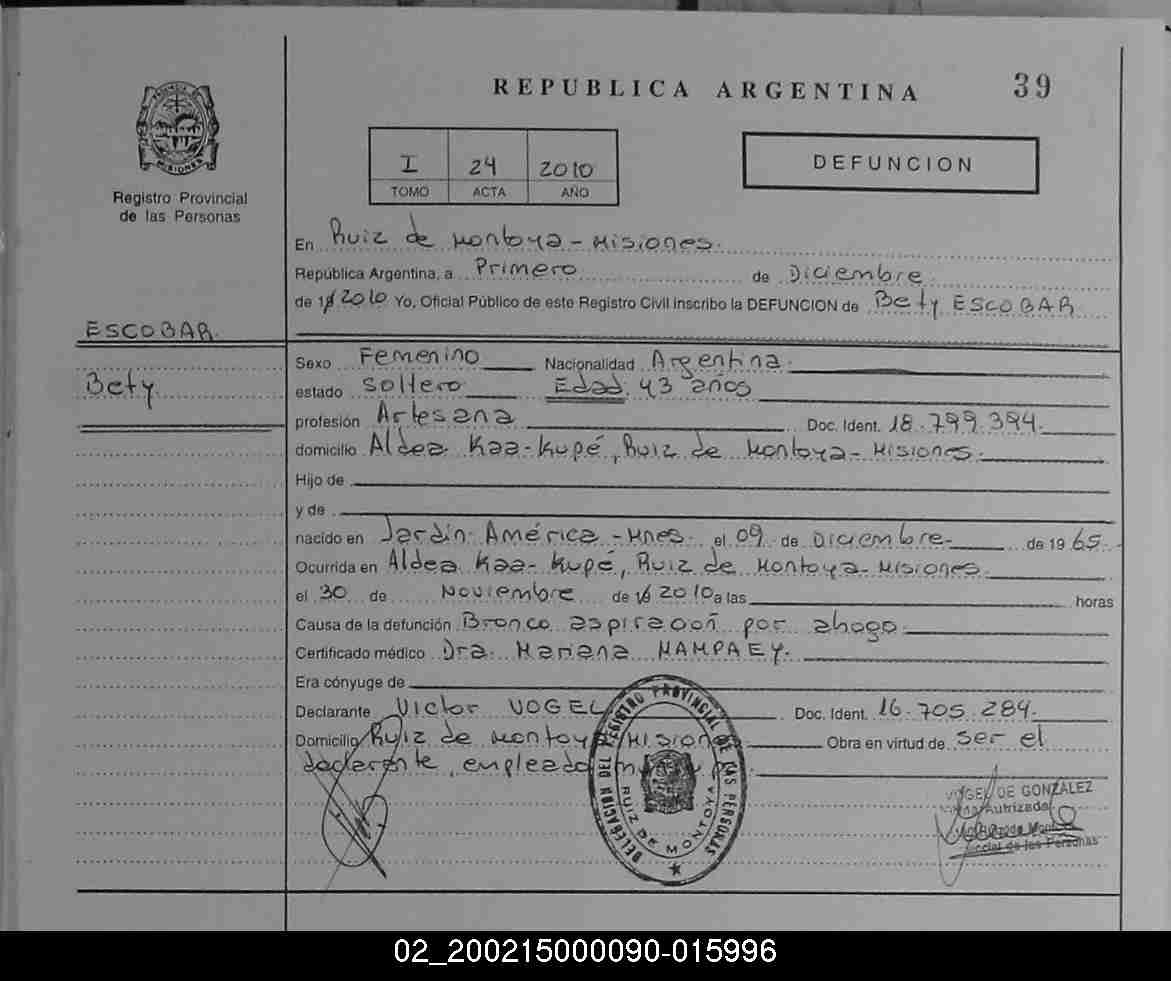 REPUBLICA ARGENTINA
39
PROVINCIA DE
MISIONES
Registro Provincial
de las Personas
I 24 2010
TOMO ACTA AÑO
DEFUNCION
En Ruiz de Montoya - Misiones.
República Argentina, a Primero de Diciembre
de 19 2010 Yo, Oficial Público de este Registro Civil inscribo la DEFUNCION de Bety ESCOBAR
ESCOBAR.
Bety
Sexo Femenino Nacionalidad Argentina.
estado Soltero Edad 43 años
profesión Artesana Doc. Ident. 18.799.394.
domicilio Aldea Kaa-Kupé, Ruiz de Montoya - Misiones.
Hijo de
y de
nacido en Jardín América - Mnes. el 09 de Diciembre de 19 65.
Ocurrida en Aldea Kaa-Kupé, Ruiz de Montoya - Misiones.
el 30 de Noviembre de 19 2010 a las horas
Causa de la defunción Bronco aspiración por ahogo.
Certificado médico Dra. Mariana MAMPAEY.
Era cónyuge de
Declarante Victor VOGEL Doc. Ident. 16.705.289.
Domicilio Ruiz de Montoya Misiones Obra en virtud de ser el
declarante, empleado
DELEGACION DEL REGISTRO PROVINCIAL DE LAS PERSONAS
RUIZ DE MONTOYA
VOGEL DE GONZALEZ
Autrizada
de las Personas
02_200215000090-015996